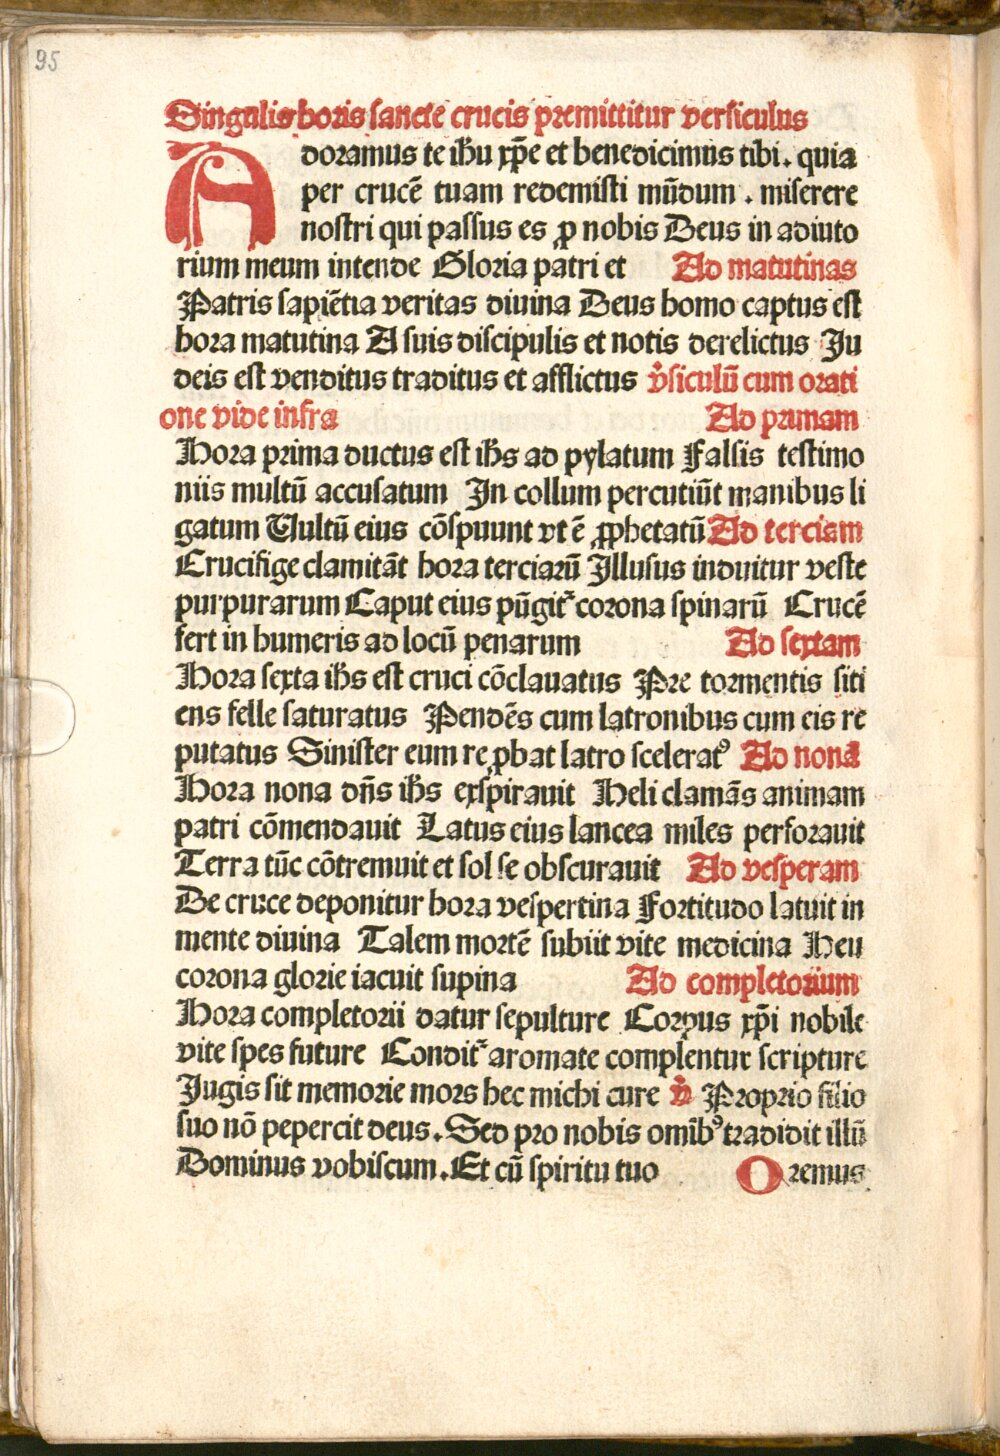 95
Singulis horis sancte crucis premittitur versiculus
Adoramus te ihū xp̄e et benedicimus tibi. quia
per crucē tuam redemisti mūdum . miserere
nostri qui passus es ꝓ nobis Deus in adiuto
rium meum intende Gloria patri et Ad matutinas
Patris sapiētia veritas diuina Deus homo captus est
hora matutina A suis discipulis et notis derelictus Ju
deis est venditus traditus et afflictus v̾siculū cum orati
one vide infra Ad primam
Hora prima ductus est ih̄s ad pylatum Falsis testimo
niis multū accusatum In collum percutiūt manibus li
gatum Vultū eius cōspuunt vt ē ꝓphetatū Ad terciam
Crucifige clamitāt hora terciarū Illusus induitur veste
purpurarum Caput eius pūgit᷑ corona spinarū Crucē
fert in humeris ad locū penarum Ad sextam
Hora sexta ih̄s est cruci cōclauatus Pre tormentis siti
ens felle saturatus Pendēs cum latronibus cum eis re
putatus Sinister eum reꝓbat latro sceleratꝰ Ad nonā
Hora nona dn̄s ih̄s exspirauit Heli clamās animam
patri cōmendauit Latus eius lancea miles perforauit
Terra tūc cōtremuit et sol se obscurauit Ad vesperam
De cruce deponitur hora vespertina Fortitudo latuit in
mente diuina Talem mortē subiit vite medicina Heu
corona glorie iacuit supina Ad completorium
Hora completorii datur sepulture Corpus xp̄i nobile
vite spes future Condit᷑ aromate complentur scripture
Jugis sit memorie mors hec michi cure v̾ Proprio filio
suo nō pepercit deus. Sed pro nobis omībꝰ tradidit illū
Dominus vobiscum. Et cū spiritu tuo Oremus